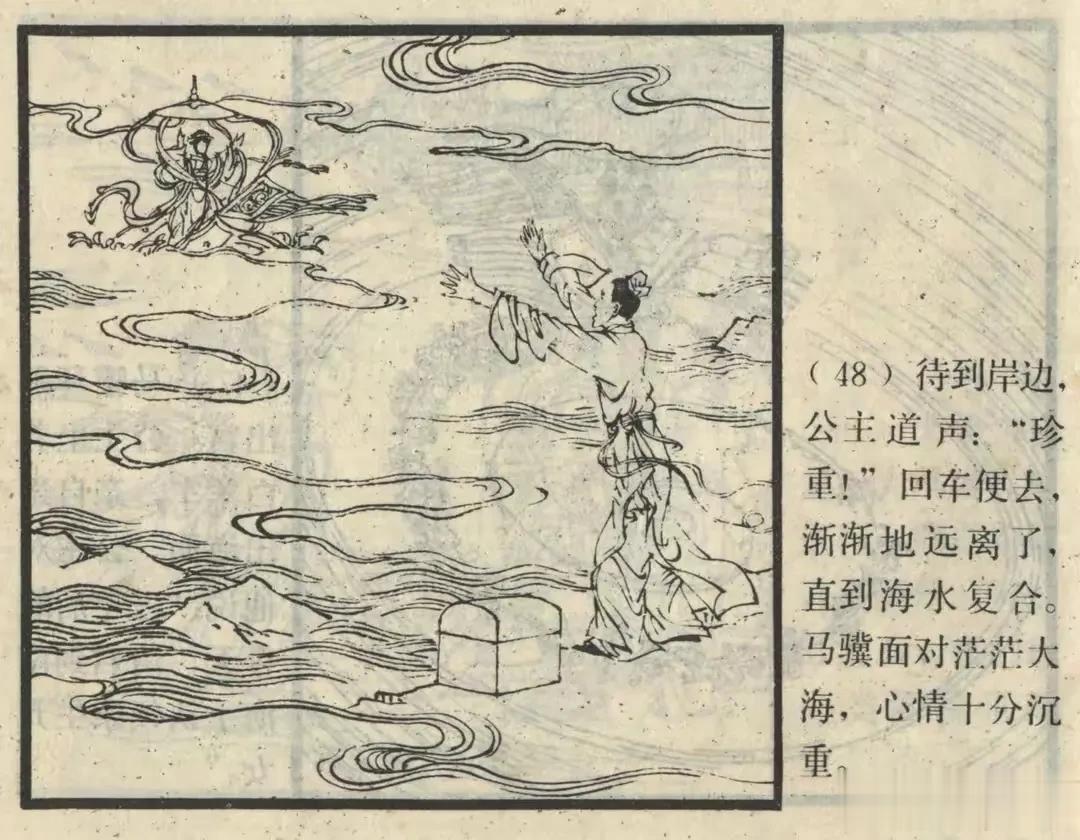 （48）待到岸边，
公主道声：“珍
重！”回车便去，
渐渐地远离了，
直到海水复合。
马骥面对茫茫大
海，心情十分沉
重。